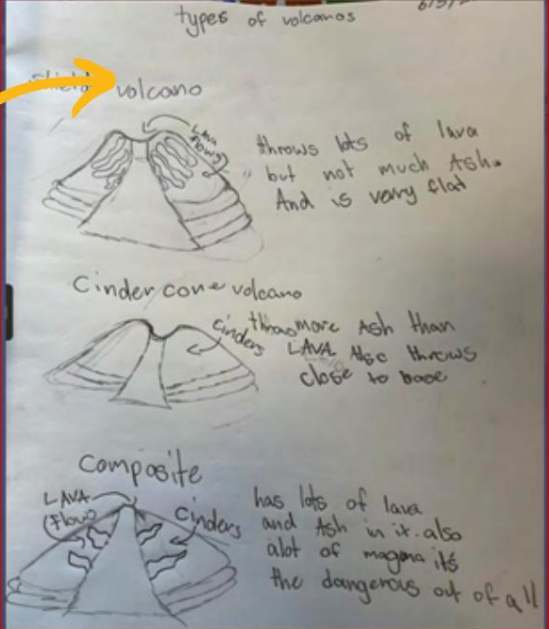 types of volcanos
shield volcano
LAVA
flows
throws lots of lava
but not much Ash.
And is verry flat
Cinder cone volcano
cinders
throws more Ash than
LAVA Also throws
close to base
composite
LAVA
(flow)
cinders
has lots of lava
and Ash in it. also
alot of magma it's
the dangerous out of all